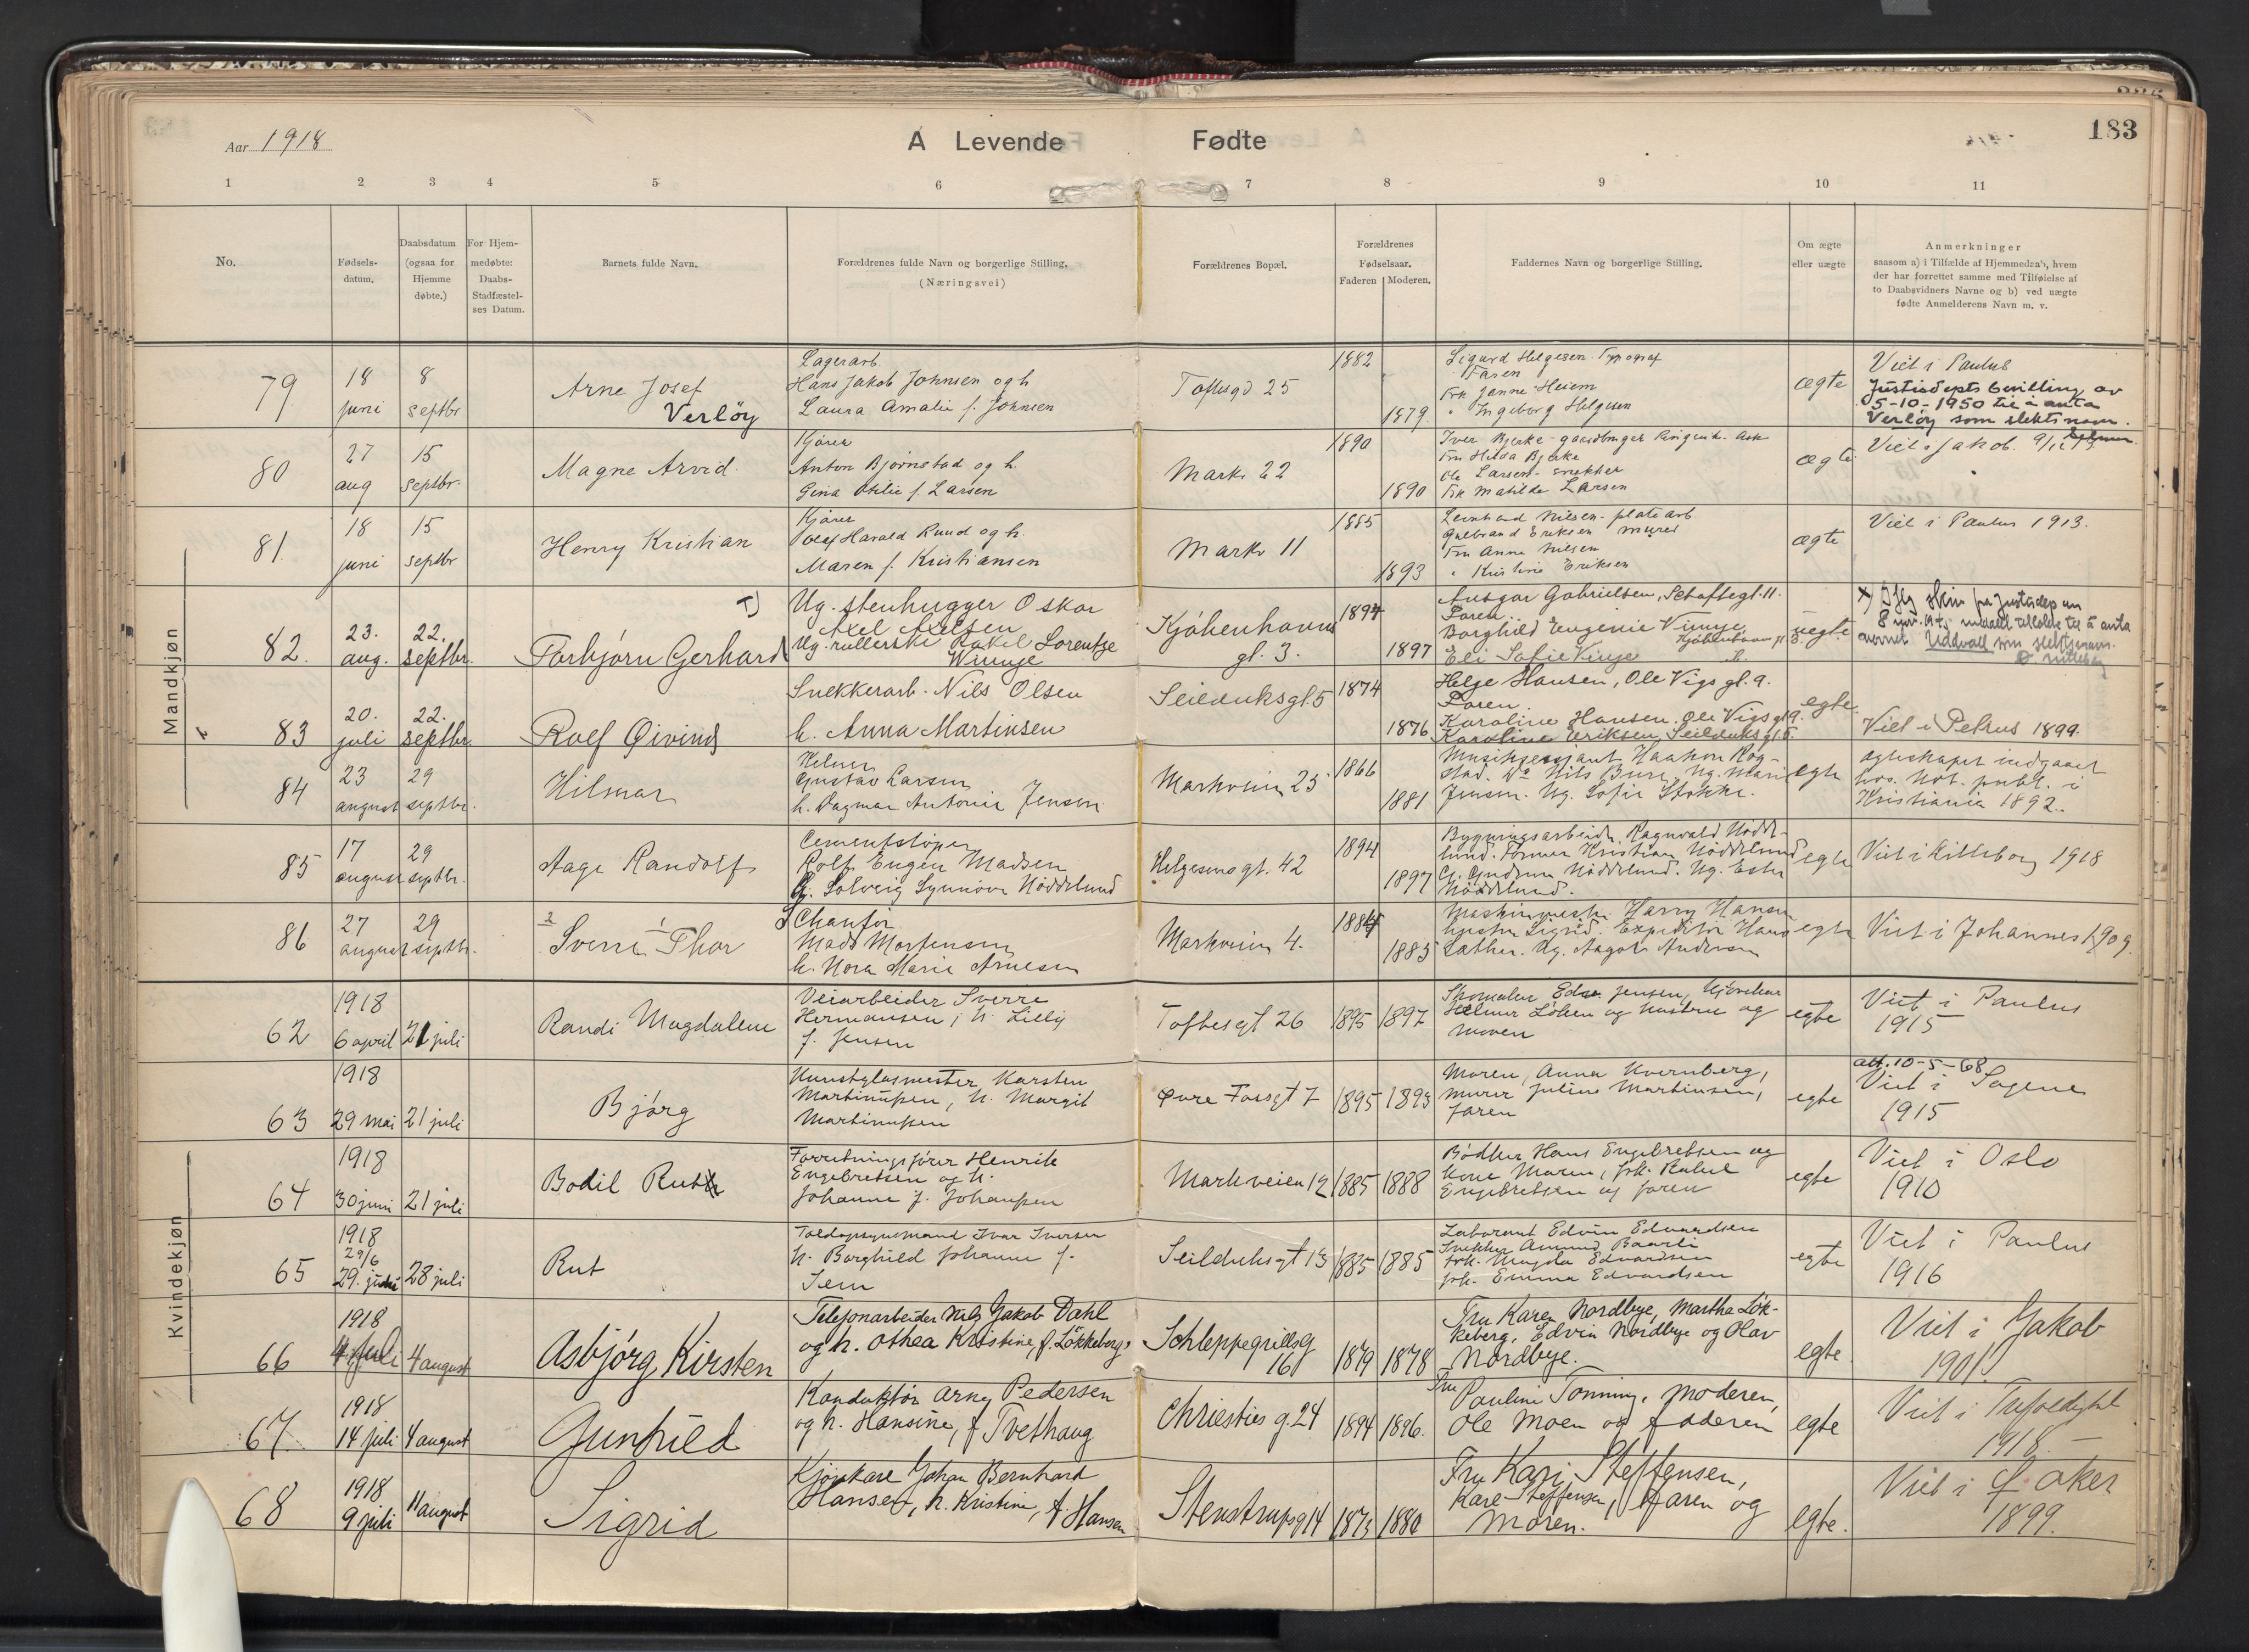 183
Aar 1918
A Levende Fødte
1 2 3 4 5 6 7 8 9 10 11
No.
Fødsels-
datum.
Daabsdatum
(ogsaa for
Hjemme
døbte.)
For Hjem-
medøbte:
Daabs-
Stadfæstel-
ses Datum.
Barnets fulde Navn.
Forældrenes fulde Navn og borgerlige Stilling.
(Næringsvei)
Forældrenes Bopæl.
Forældrenes
Fødselsaar.
Faderen Moderen.
Faddernes Navn og borgerlige Stilling.
Om ægte
eller uægte
Anmerkninger
saasom a) i Tilfælde af Hjemmedaab, hvem
der har forrettet samme med Tilføielse af
to Daabsvidners Navne og b) ved uægte
fødte Anmelderens Navn m. v.
Mandkjøn
79
18
juni
8
septbr
Arne Josef
Verløy
Lagerarb.
Hans Jakob Johnsen og h
Laura Amalie f. Johnsen
Toftesgd 25
1882
1879
Sigurd Helgesen Typograf
Faren
Frk Janne Heiem
" Ingeborg Helgesen
ægte
Viet i Paulus
Justisdepts bevilling av
5-10-1950 til å anta
Verløy som slektsnavn.
80
27
aug
15
septbr.
Magne Arvid
Kjører
Anton Bjørnstad og h.
Gina Otilie f. Larsen
Markv 22
1890
1890
Iver Bjerke - gaardbruger
Fru Hilda Bjerke
Ole Larsen - snekker
Frk Matilde Larsen
ægte
Viet i Jakob.
81.
18
juni
15
septbr
Henry Kristian
Kjører
Olaf Harald Ruud og h.
Maren f. Kristiansen
Markv 11
1885
1893
Leonhard Nilsen - platearb
Gulbrand Eriksen murer
Fru Anne Nilsen
" Kristine Eriksen
ægte
Viet i Paulus 1913.
82.
23.
aug.
22.
septbr.
Torbjørn Gerhard
Ug. stenhugger Oskar
Axel Axelsen
Ug. rullerske Rakel Lorentze
Winnje
Kjøbenhavns
gt. 3.
1894
1897
Ansgar Gabrielsen,
Faren
Borghild Eugenie
Eli Sofie
uegte
Uddvall som slektsnavn.
83
20.
juli
22.
septbr.
Rolf Øivind
Snekkerarb. Nils Olsen
h. Anna Martinsen
Seilduksgt. 5
1874
1876
Helge Hansen, Ole Vigs gt. 9.
Faren.
Karoline Hansen. Ole Vigs gt 9.
Karoline Eriksen, Seilduksgt 5.
egte.
Viet i Petrus 1899.
84
23
august
29
septbr.
Hilmar
Kelner
Gustav Larsen
h. Dagmar Antonie Jensen
Markveien 25
1866
1881
Musiksersjant Haakon Røg-
stad. Nils Buer, Ug. Marie
Jensen. Ug. Sofie Stokke.
egte
Egteskapet indgaaet
hos. Not. publ. i
Kristiania 1892.
85
17
august
29
septbr.
Aage Randolf
Cementstøper
Rolf Eugen Madsen
h. Solveig Synnøve Nöddelund
Helgesensgt. 42
1894
1897
Bygningsarbeid. Ragnvald Nödde-
lund. Former Kristian Nöddelund
G. Gudrun Nöddelund. Ug. Ester
Nöddelund.
egte
Viet i Lilleborg 1918
86
27
august
29
septbr.
2 1
Sverre Thor
Chaufør
Mads Mortensen
h. Nora Marie Arnesen
Markveien 4.
1884
1885
Maskinmester Harry Hansen
hustru Sigrid. Expeditør Hans
Sather. Ug. Aagot Andersen
egte
Viet i Johannes 1909.
Kvindekjøn
62
1918
6 april
21 juli
Randi Magdalene
Veiarbeider Sverre
Hermansen, h. Lilly
f. Jensen
Toftesgt 26
1895
1897
Skomaker Edv. Jensen,
Helmer Løken og hustru og
moren
egte
Viet i Paulus
1915
63
1918
29 mai
21 juli
Bjørg
Kunstglasmester Karsten
Martinussen, h. Margit
Martinussen
Øvre Fossgt 7
1895
1893
Moren, Anna Kvernberg,
murer Julius Martinsen,
faren
egte
att. 10-5-68
Viet i Sagene
1915
64
1918
30 juni
21 juli
Bodil Ruth
Forretningsfører Henrik
Engebretsen og h.
Johanne f. Johanssen
Markveien 12
1885
1888
Bødker Hans Engebretsen og
kone Maren, frk. Rakel
Engebretsen og faren
egte
Viet i Oslo
1910
65
1918
29/6
29. juni
28 juli
Rut
Toldopsynsmand Ivar Iversen
h. Borghild Johanne f.
Jem
Seilduksgt 13
1885
1885
Laborant Edvin Edvardsen
Snekker Amund Baarli
frk. Magda Edvardsen
frk. Emma Edvardsen
egte
Viet i Paulus
1916
66
1918
4 juli
4 august
Asbjørg Kirsten
Telefonarbeider Nils Jakob Dahl
og h. Othea Kristine, f. Løkkeberg
Schleppegrellsg
16
1879
1878
Fru Karen Nordbye, Martha Løk-
keberg, Edvin Nordbye og Olav
Nordbye.
egte
Viet i Jakob
1901.
67
1918
14 juli
4 august
Gunhild
Konduktør Arne Pedersen
og h. Hansine, f Tvethaug
Christies g. 24
1894
1896.
Fru Pauline Tønning, moderen,
Ole Moen og faderen
egte
Viet i Trefoldighet
1918.
68
1918
9 juli
11 august
Sigrid
Kjørekare Johan Bernhard
Hansen, h. Kristine, f. Hansen
Stenstrupsg 14
1873
1880
Fru Kari Steffensen,
Kare Steffensen, Faren og
moren.
egte.
Viet i Ø. Aker
1899.